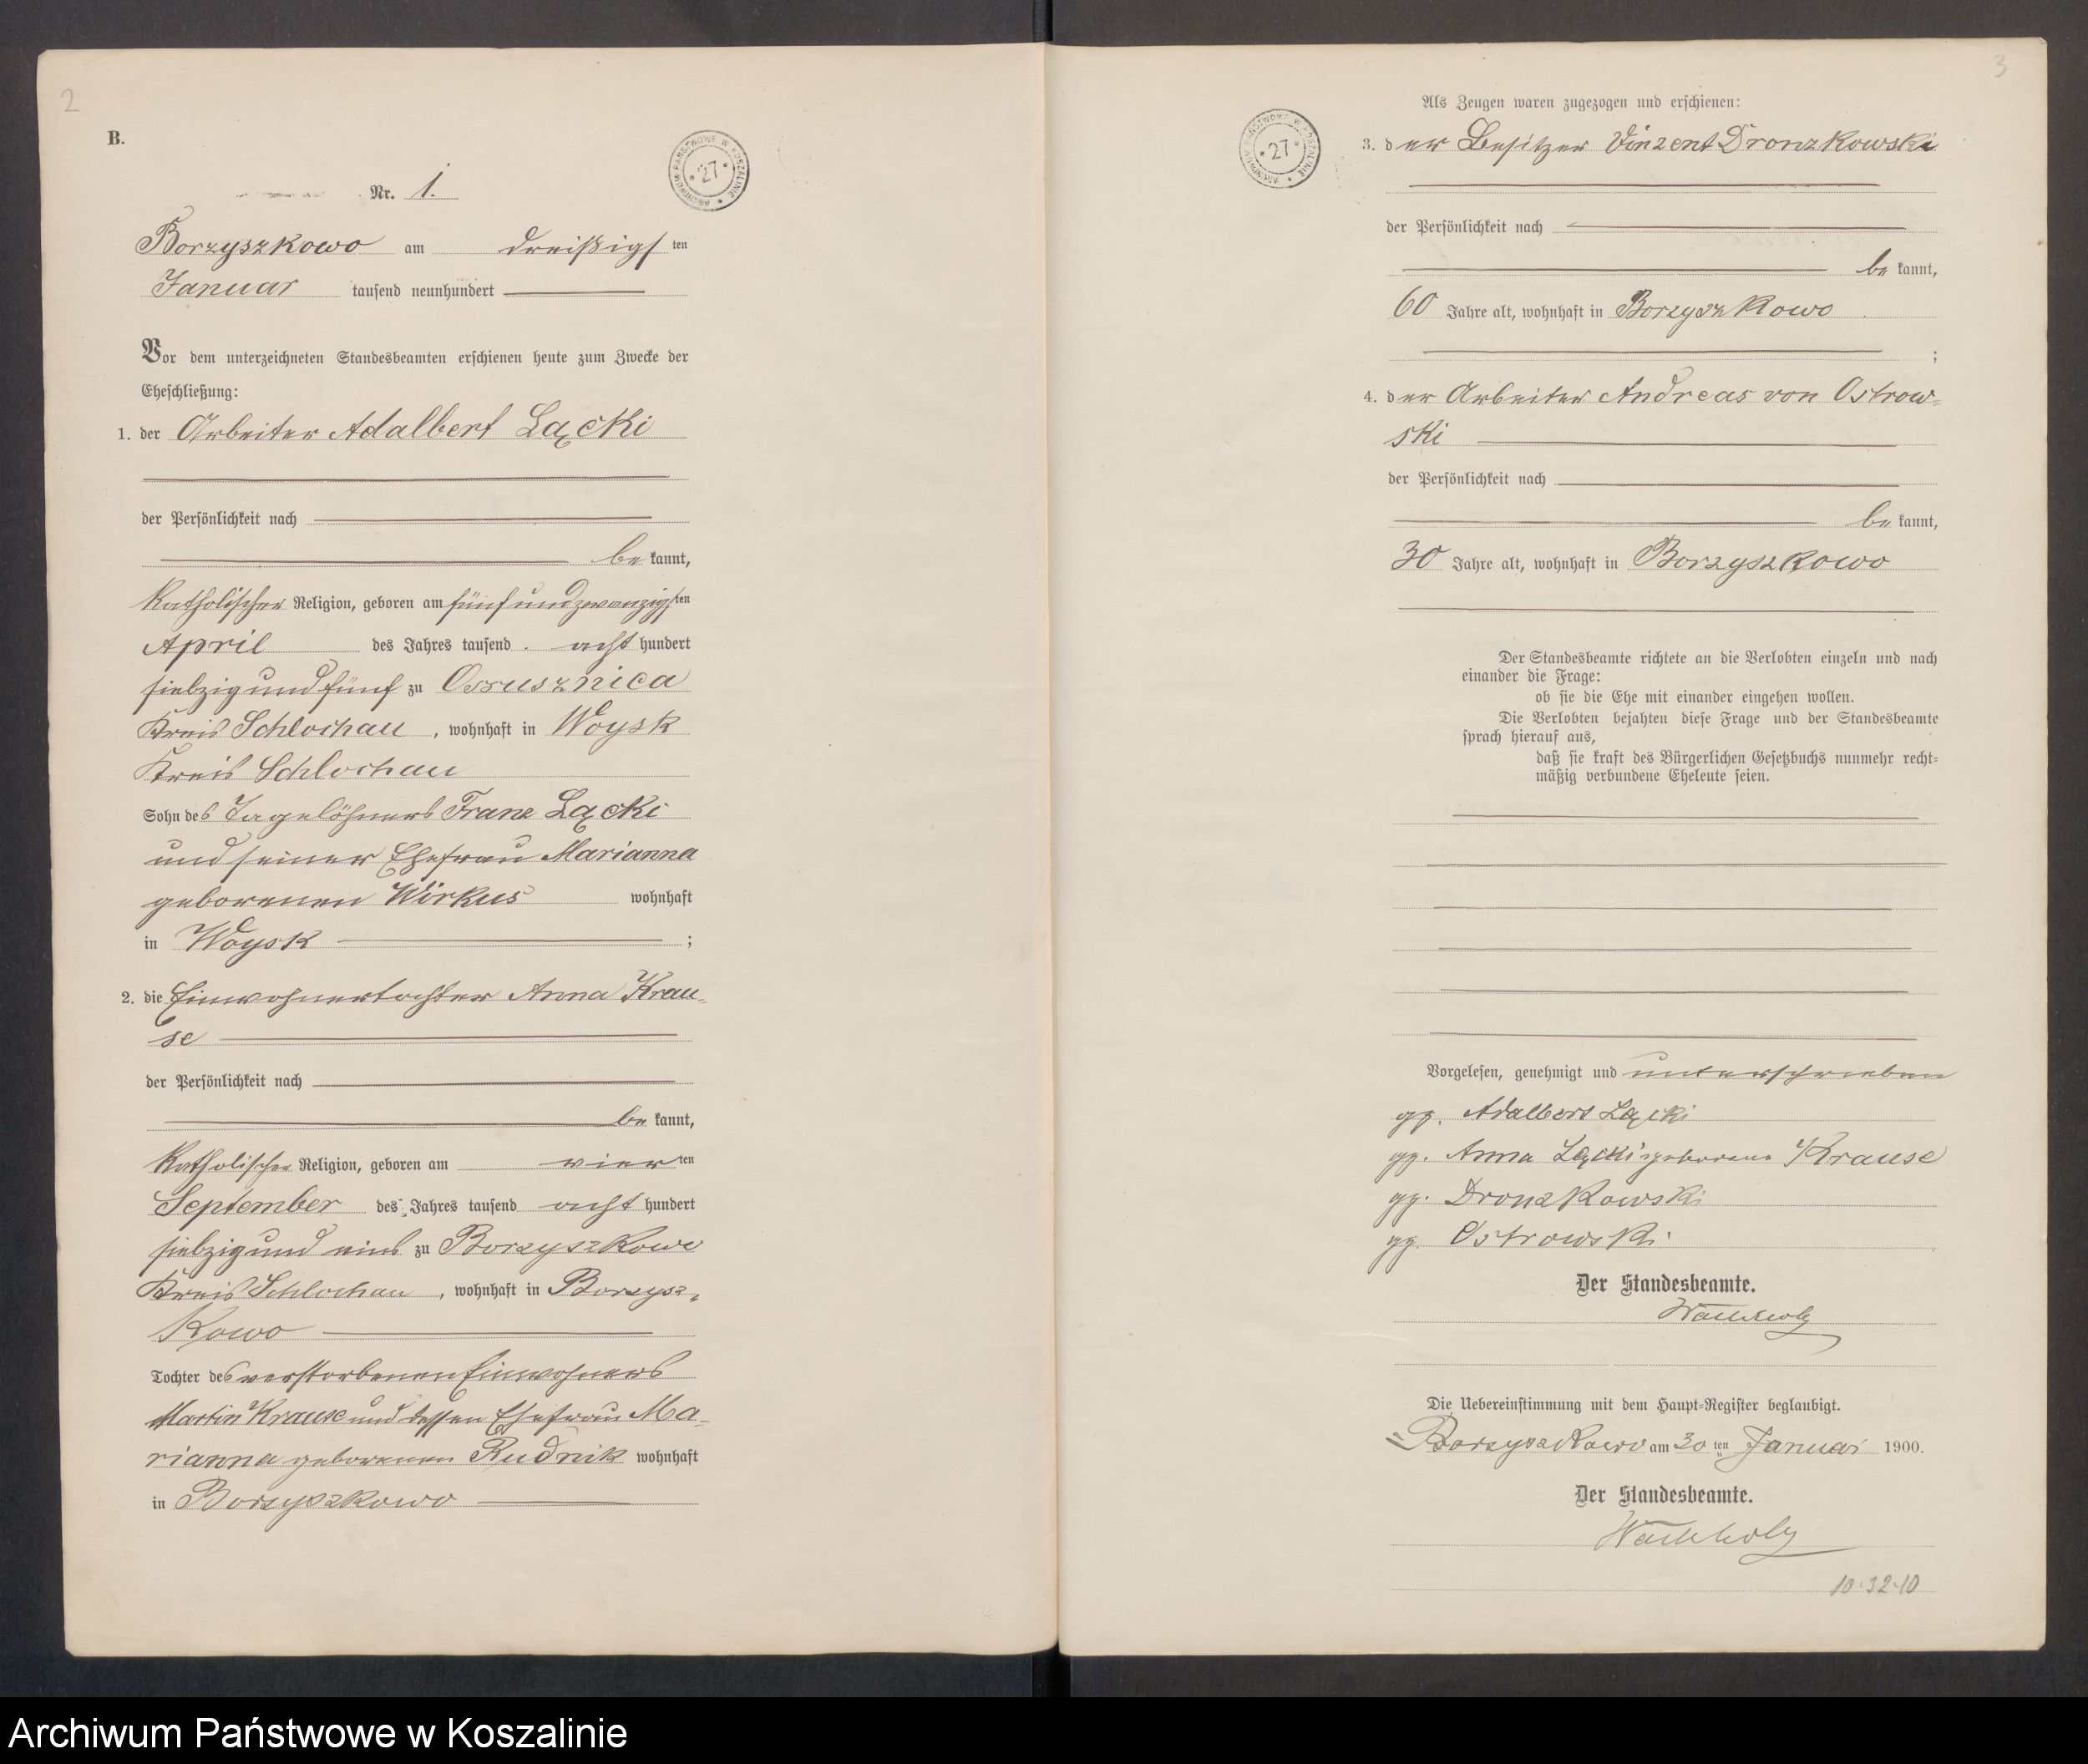 2
B.
Nr. 1.
ARCHIWUM PAŃSTWOWE W KOSZALINIE * 27 *
Borzyszkowo am dreißigsten
Januar tausend neunhundert
Vor dem unterzeichneten Standesbeamten erschienen heute zum Zwecke der
Eheschließung:
1. der Arbeiter Adalbert Lącki
der Persönlichkeit nach
bekannt,
katholischer Religion, geboren am fünfundzwanzigsten
April des Jahres tausend achthundert
siebzig und fünf zu Ossusznica
Kreis Schlochau, wohnhaft in Woysk
Kreis Schlochau
Sohn des Tagelöhners Franz Lącki
und seiner Ehefrau Marianna
geborenen Wirkus wohnhaft
in Woysk ;
2. die Einwohnertochter Anna Krau-
se
der Persönlichkeit nach
bekannt,
katholischer Religion, geboren am vierten
September des Jahres tausend achthundert
siebzig und eins zu Borzyszkowo
Kreis Schlochau, wohnhaft in Borzysz-
kowo
Tochter des verstorbenen Einwohners
Martin Krause und dessen Ehefrau Ma-
rianna geborenen Rudnik wohnhaft
in Borzyszkowo
3
Als Zeugen waren zugezogen und erschienen:
ARCHIWUM PAŃSTWOWE W KOSZALINIE * 27 *
3. der Besitzer Vinzent Dronzkowski
der Persönlichkeit nach
bekannt,
60 Jahre alt, wohnhaft in Borzyszkowo
;
4. der Arbeiter Andreas von Ostrow-
ski
der Persönlichkeit nach
bekannt,
30 Jahre alt, wohnhaft in Borzyszkowo
Der Standesbeamte richtete an die Verlobten einzeln und nach
einander die Frage:
ob sie die Ehe mit einander eingehen wollen.
Die Verlobten bejahten diese Frage und der Standesbeamte
sprach hierauf aus,
daß sie kraft des Bürgerlichen Gesetzbuchs nunmehr recht-
mäßig verbundene Eheleute seien.
Vorgelesen, genehmigt und unterschrieben
gz. Adalbert Lącki
gz. Anna Lącki geborene Krause
gz. Dronzkowski
gz. Ostrowski
Der Standesbeamte.
Wachholz
Die Uebereinstimmung mit dem Haupt-Register beglaubigt.
Borzyszkowo am 30ten Januar 1900.
Der Standesbeamte.
Wachholz
10·32·10
Archiwum Państwowe w Koszalinie